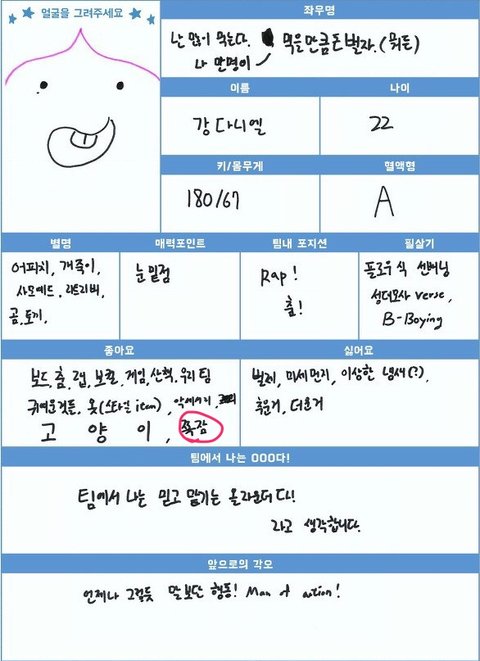 얼굴을 그려주세요
좌우명
난 많이 먹는다. 먹을만큼 돈벌자.(뭐든)
나 만명이
이름
나이
강다니엘
22
키/몸무게
혈액형
180/67
A
별명
매력포인트
팀내 포지션
필살기
어피치, 개죽이,
사모예드, 리트리버,
곰, 토끼,
눈밑점
Rap!
춤!
플로우식 선배님
성대모사 verse,
B-Boying
좋아요
싫어요
보드, 춤, 랩, 보컬, 게임, 산책, 우리팀
귀여운것들, 옷(스타일 item), 악세서리,
고양이, 쪽잠
벌레, 미세먼지, 이상한 냄새(?),
추운거, 더운거
팀에서 나는 OOO다!
팀에서 나는 믿고 맡기는 올라운더다!
라고 생각합니다.
앞으로의 각오
언제나 그렇듯 말보단 행동! Man of action!